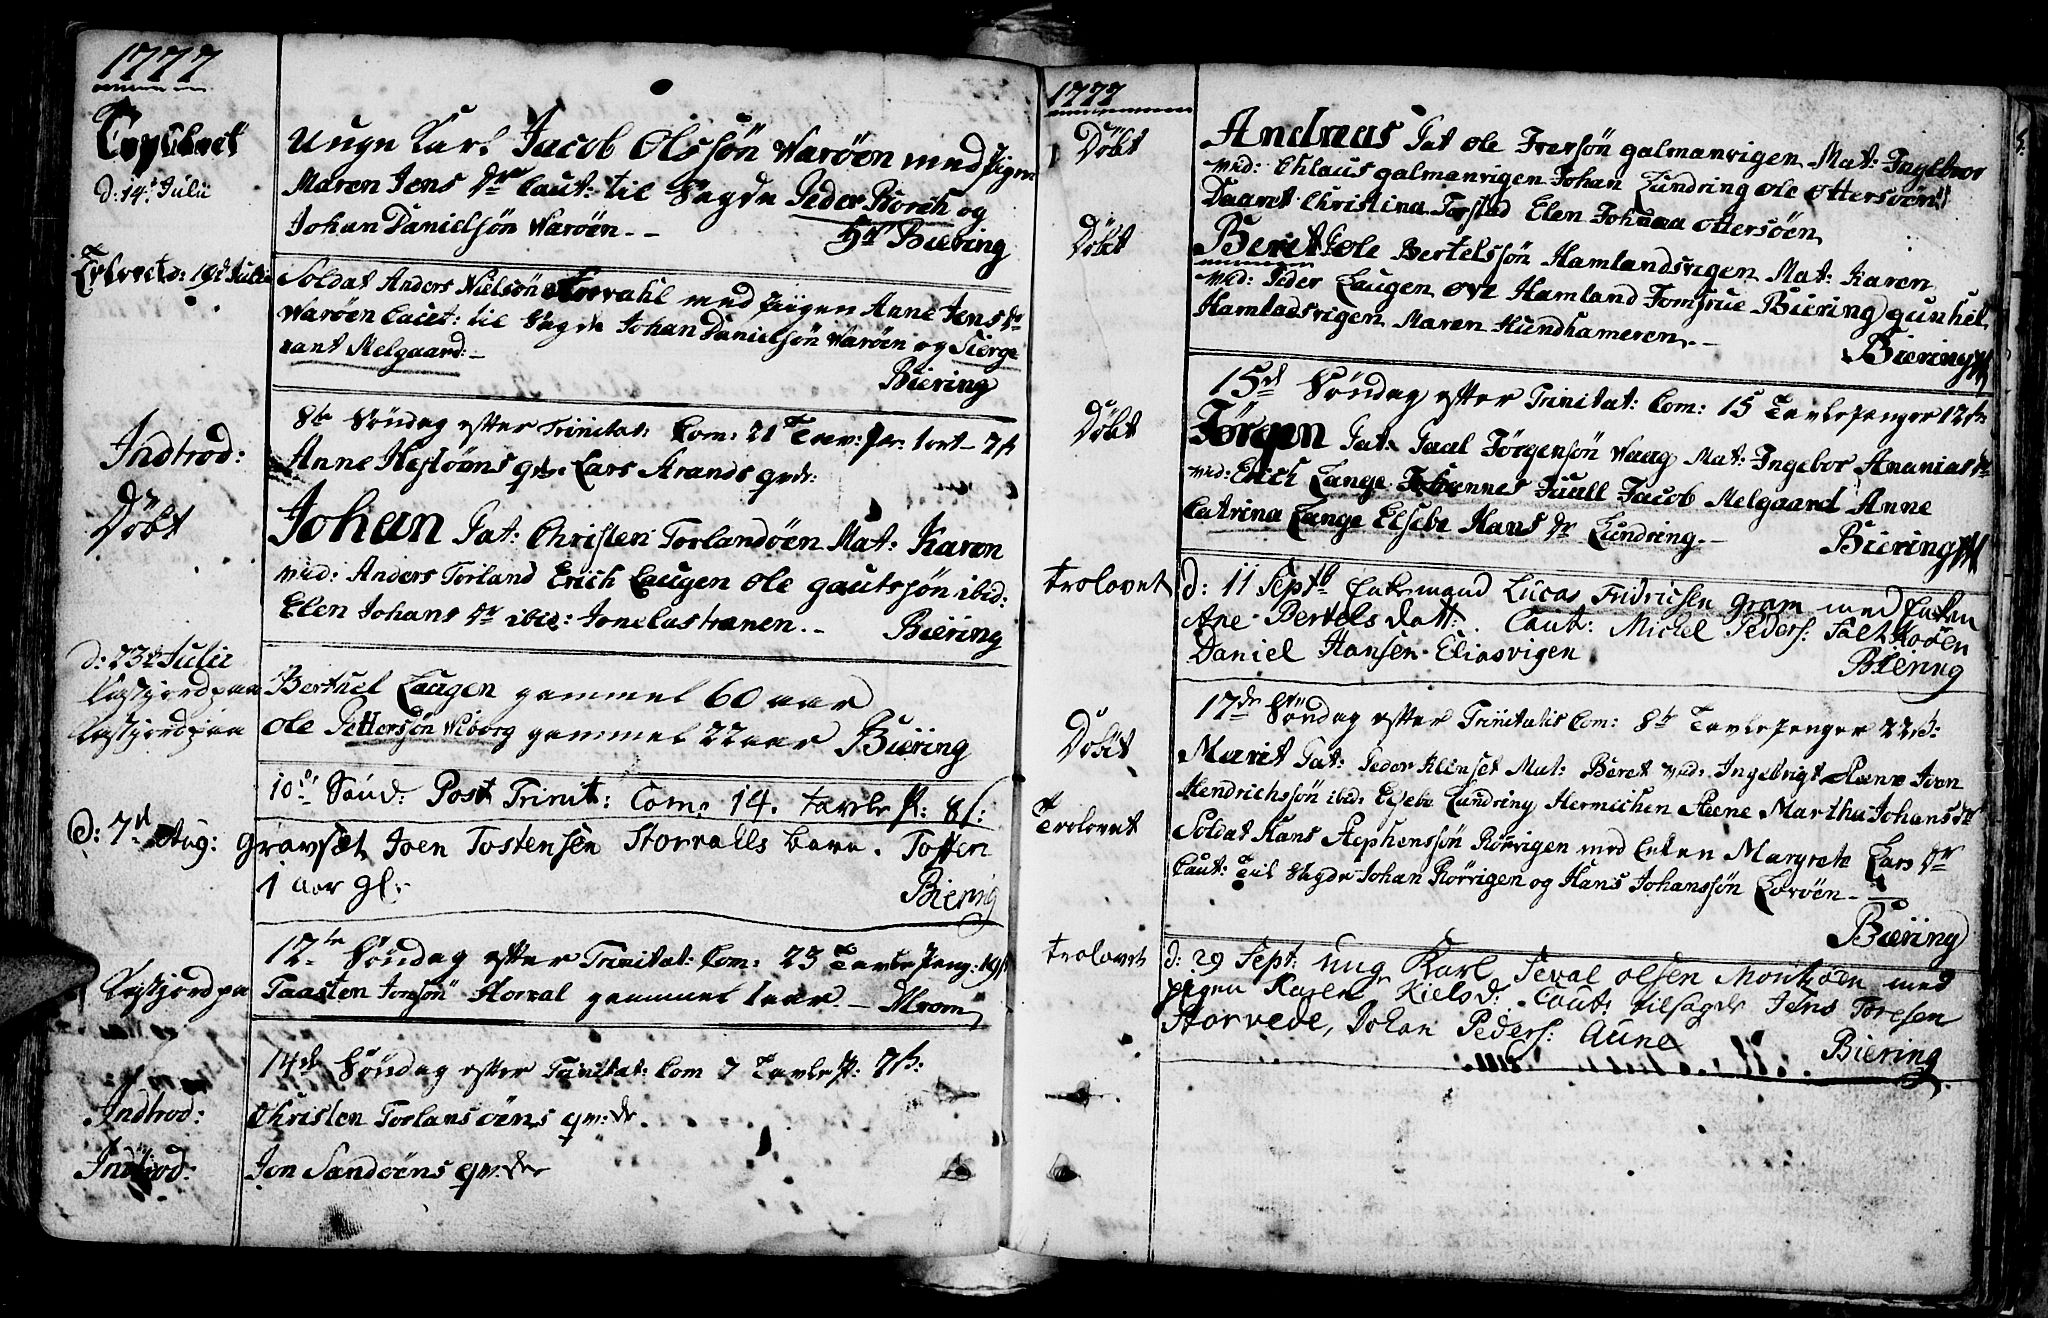 1777
d: 14de Julii
Unge Karl Jacob Olssön Waröen med Pigen
Maren Jens dr Caut: til Sagde Peder Borch og
Johan Danielsön Waröen - -
Hr Biering
Trlovet d: 18de Julii
Soldat Anders Nielsön Storvahl med Piigen Anne Jens dr
Waröen Caut: til Sagde Johan Danielsön Waröen og Sierge
rant Melgaard: -
Biering
8de Söndag efter Trinitat: Com: 21 Tav:
Indtrod:
Anne Hestöens qv: Lars Strands qvd:
Döbt
Johan Pat: Christen Torlandöen Mat: Karen
vid: Anders Torland Erich Laugen Ole Gautssön ibid:
Elen Johans dr ibid: Jonetastranen. -
Biering
d: 23de Julii
Kastjord paa
Berthel Laugen gammel 60 aar
Kastjord paa
Ole Pettersön Wiborg gammel 22 aar Biering
10de Sönd: Post Trinit: Com: 14. Tavle P: 8 s:
d: 7de Aug: Gravsat Joen Tostensen Storvalls barn. Tosten
1 aar gl:
Biering
12te Söndag efter Trinitat: Com: 23 Tavle Peng: 19 s
Kastjord paa
Taasten Jonsön Storval gammel 1 aar -
14de Söndag efter Trinitat: Com 7 Tavle P: 7 s:
Indtrod:
Christen Torlansöens qv:
Indtrod:
Jon Sandöens qv:
1777
Döbt
Andreas Pat Ole Iversön Galmanvigen Mat: Ingebor
vid: Chlaus Galmanvigen Johan Lundring Ole Ottersöen
Daaret Christina Torstad Elen Johanna Ottersöen
Döbt
Beret P: Ole Bertelssön Hamlandsvigen Mat: Karen
vid: Peder Laugen Ove Hamland Jomfrue Biering Gunhel
Hamladsvigen Maren Hundhameren. -
Biering
15de Söndag efter Trinitat: Com: 15 Tavlepenger 12 s:
Döbt
Jörgen Pat: Paal Jörgensön Waag Mat: Ingebor Ananias dr
vid: Erich Lange Johannes Juull Jacob Melgaard Anne
Catrina Lange Elsebe Hans dr Lundring. -
Biering
trolovet
d: 11 Septb Enkemand Lucas Fridrichsen Gram med Enken
Ane Bertels datt: Caut: Michel Peders: Faltskoeen
Daniel Hansen Eliasvigen
Biering
17de Söndag efter Trinitatis Com: 8te Tavlepenger 22 s:
Döbt
Marit Pat: Peder Klenset Mat: Beret vid: Ingebrigt Steene Joen
Hendrichssön ibid: Elsebe Lundring Hermichen Steene Martha Johans dr
Trolovet
Soldat Hans Stephenssön Rörvigen med Enken Margrete Lars dr
Caut: Til Sagde Johan Rörvigen og Hans Johanssön Lovöen -
Biering
trolovet
d: 29 Sept: ung Karl Seval Olsen Moritzöen med
pigen Karen Kields d: Caut: tilsagde Jens Toresen
Storvede, Johan Peders: Aune
Biering